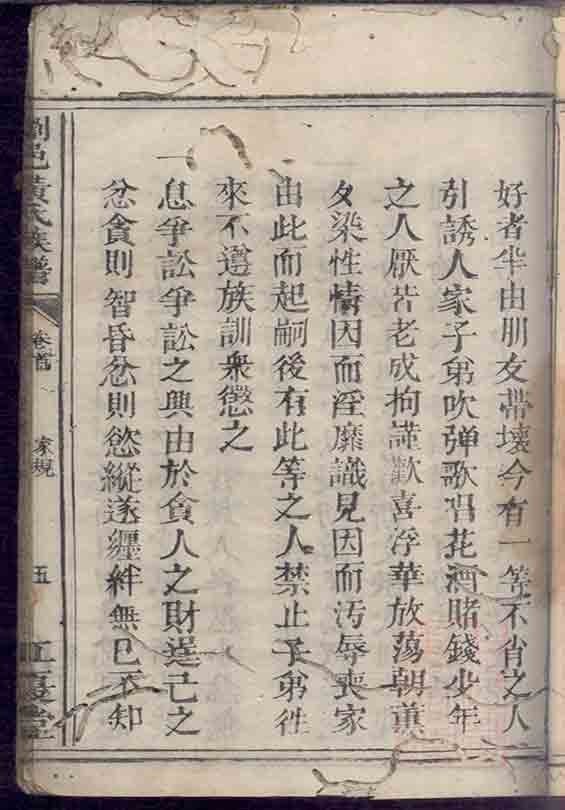 好者半由朋友帶壞今有一等不肖之人
引誘人家子弟吹弹歌唱花酒賭錢少年
之人厭苦老成拘謹歡喜浮華放蕩朝薰
夕染性情因而淫靡識見因而污辱喪家
由此而起嗣後有此等之人禁止子弟徃
來不遵族訓衆懲之
一息爭訟爭訟之興由於貪人之財逞己之
忿貪則智昏忿則慾縱遂纒絆無已不知
瀏邑黃氏族譜
卷首
家規
五
江夏堂